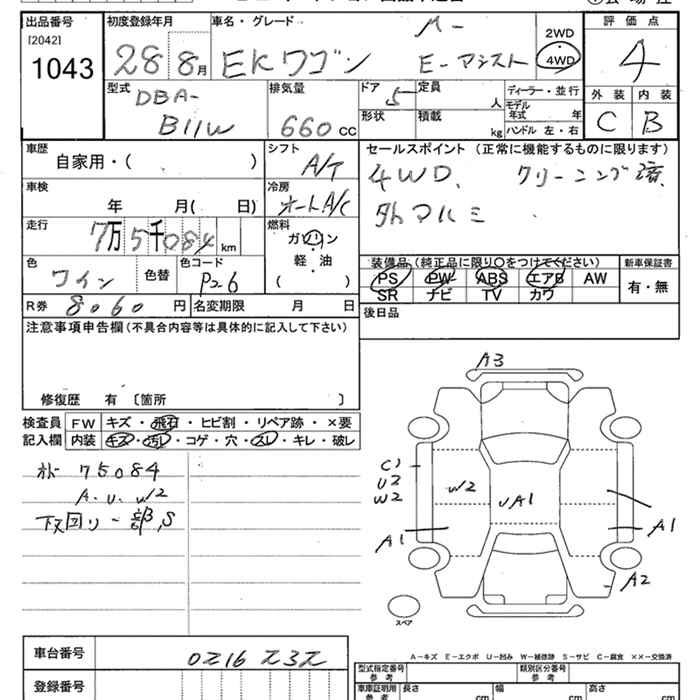 出品番号
[2042]
1043
初度登録年月
28 8月
車名・グレード
M-
EKワゴン E-アシスト
2WD
4WD
評価点
4
外装 内装
C B
型式
DBA-
B11W
排気量
660 cc
ドア 5
形状
定員 人
積載 kg
ディーラー・並行
モデル年式 年
ハンドル 左・右
車歴
自家用・( )
シフト
A/T
車検
年 月( 日)
冷房
オートA/C
走行
7万5千084 km
燃料
ガソリン
軽・油
( )
色
ワイン
色替
色コード
P26
R券 8060 円
名変期限 月 日
セールスポイント (正常に機能するものに限ります)
4WD、 クリーニング済
外マルミ
装備品 (純正品に限り〇をつけてください)
PS PW ABS エアB AW
SR ナビ TV カワ
新車保証書
有・無
後日品
注意事項申告欄 (不具合内容等は具体的に記入して下さい)
修復歴 有 〔箇所 〕
検査員
記入欄
FW キズ・飛石・ヒビ割・リペア跡・×要
内装 キズ・汚レ・コゲ・穴・スレ・キレ・破レ
オドー 75084
A.U.W2
下回り一部S
A3
C1
U2
W2
W2
UA1
A1
A1
A2
スペア
A-キズ E-エクボ U-凹み W-補修跡 S-サビ C-腐食 XX-交換済
車台番号
0216232
登録番号
型式指定番号
参考
類別区分番号
参考
車庫証明用
参考
長さ cm
幅 cm
高さ cm